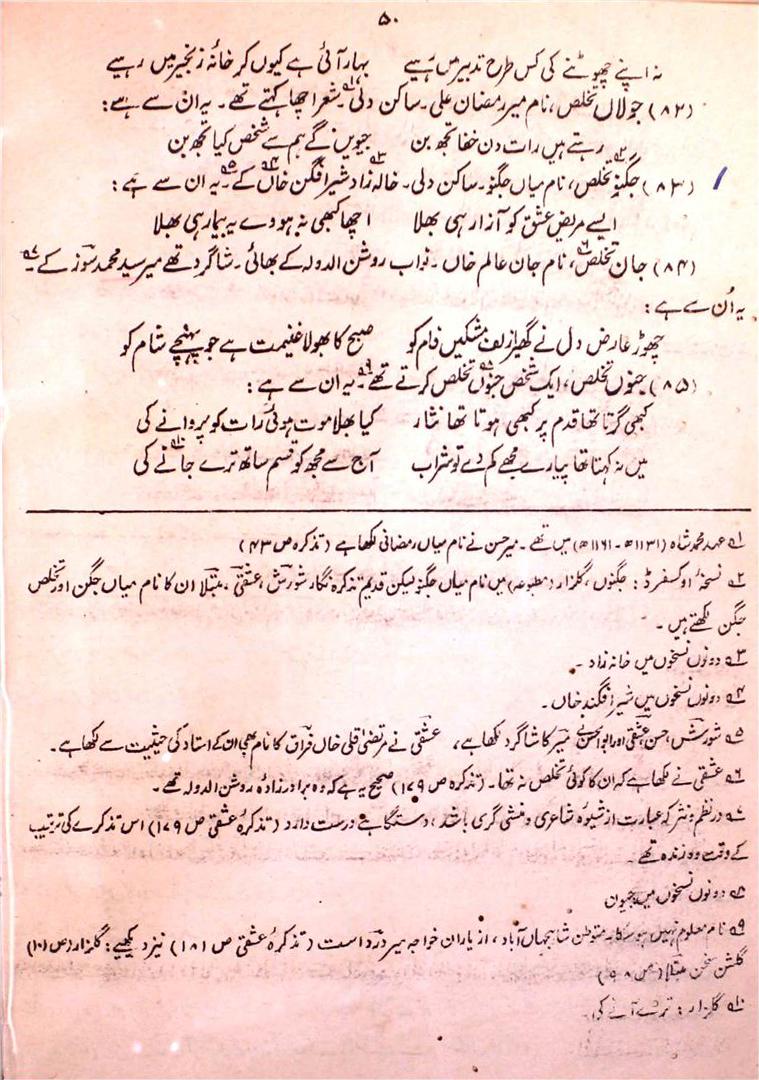 ۵۰
نہ اپنے چھوٹنے کی کس طرح تدبیر میں رہیے بہار آئی ہے کیوں کر خانۂ زنجیر میں رہیے
(۸۲) جولاں تخلص، نام میر رمضان علی۔ ساکن دلی۔ شعر اچھا کہتے تھے۔ یہ ان سے ہے:
رہتے ہیں رات دن خفا تجھ بن جیویں گے ہم سے شخص کیا تجھ بن
(۸۳) جگنو تخلص، نام میاں جگنو۔ ساکن دلی۔ خالہ زاد شیر افگن خاں کے۔ یہ ان سے ہے:
ایسے مریض عشق کو آزار ہی بھلا اچھا کبھی نہ ہووے یہ بیمار ہی بھلا
(۸۴) جان تخلص، نام جان عالم خاں۔ نواب روشن الدولہ کے بھائی۔ شاگرد تھے میر سید محمد سوز کے۔
یہ اُن سے ہے:
چھوڑ عارض دل نے گھیرا زلف مشکیں فام کو صبح کا بھولا غنیمت ہے جو پہنچے شام کو
(۸۵) جنوں تخلص، ایک شخص جنوں تخلص کرتے تھے۔ یہ ان سے ہے:
کبھی گرتا تھا قدم پر کبھی ہوتا تھا نثار کیا بھلا موت ہوئی رات کو پروانے کی
میں نہ کہتا تھا پیارے مجھے کم دے تو شراب آج سے مجھ کو قسم ساتھ ترے جانے کی
۱ عہد محمد شاہ (۱۱۳۱ھ - ۱۱۶۱ھ) میں تھے۔ میر حسن نے نام میاں رمضانی لکھا ہے (تذکرہ ص ۴۳)
۲ نسخۂ اوکسفرڈ: جگنوں، گلزار (مطبوعہ) میں نام میاں جگنو لیکن قدیم تذکرہ نگار شورش، عشقی، مبتلا ان کا نام میاں جگن اور تخلص
جگن لکھتے ہیں۔
۳ دونوں نسخوں میں خانہ زاد۔
۴ دونوں نسخوں میں شیر افگند خاں۔
۵ شورش، حسن، عشقی اور ابوالحسن نے میر کا شاگرد لکھا ہے، عشقی نے مرتضیٰ قلی خاں فراق کا نام بھی ان کے استاد کی حیثیت سے لکھا ہے۔
۶ عشقی نے لکھا ہے کہ ان کا کوئی تخلص نہ تھا۔ (تذکرہ ص ۱۷۹) صحیح یہ ہے کہ وہ برادر زادہ روشن الدولہ تھے۔
۷ در نظم و نثر کہ عبارت از شیوہ شاعری و منشی گری باشد، دستگاہے درست دارد (تذکرۂ عشقی ص ۱۷۹) اس تذکرے کی ترتیب
کے وقت وہ زندہ تھے۔
۸ دونوں نسخوں میں جیوان
۹ نام معلوم نہیں ہو سکا۔ متوطن شاہجہاں آباد، از یاران خواجہ میر درد است (تذکرۂ عشقی ص ۱۸۱) نیز دیکھیے: گلزار (ص ۱۰۱)
گلشن سخن مبتلا
۱۰ گلزار: ترے آنے کی۔